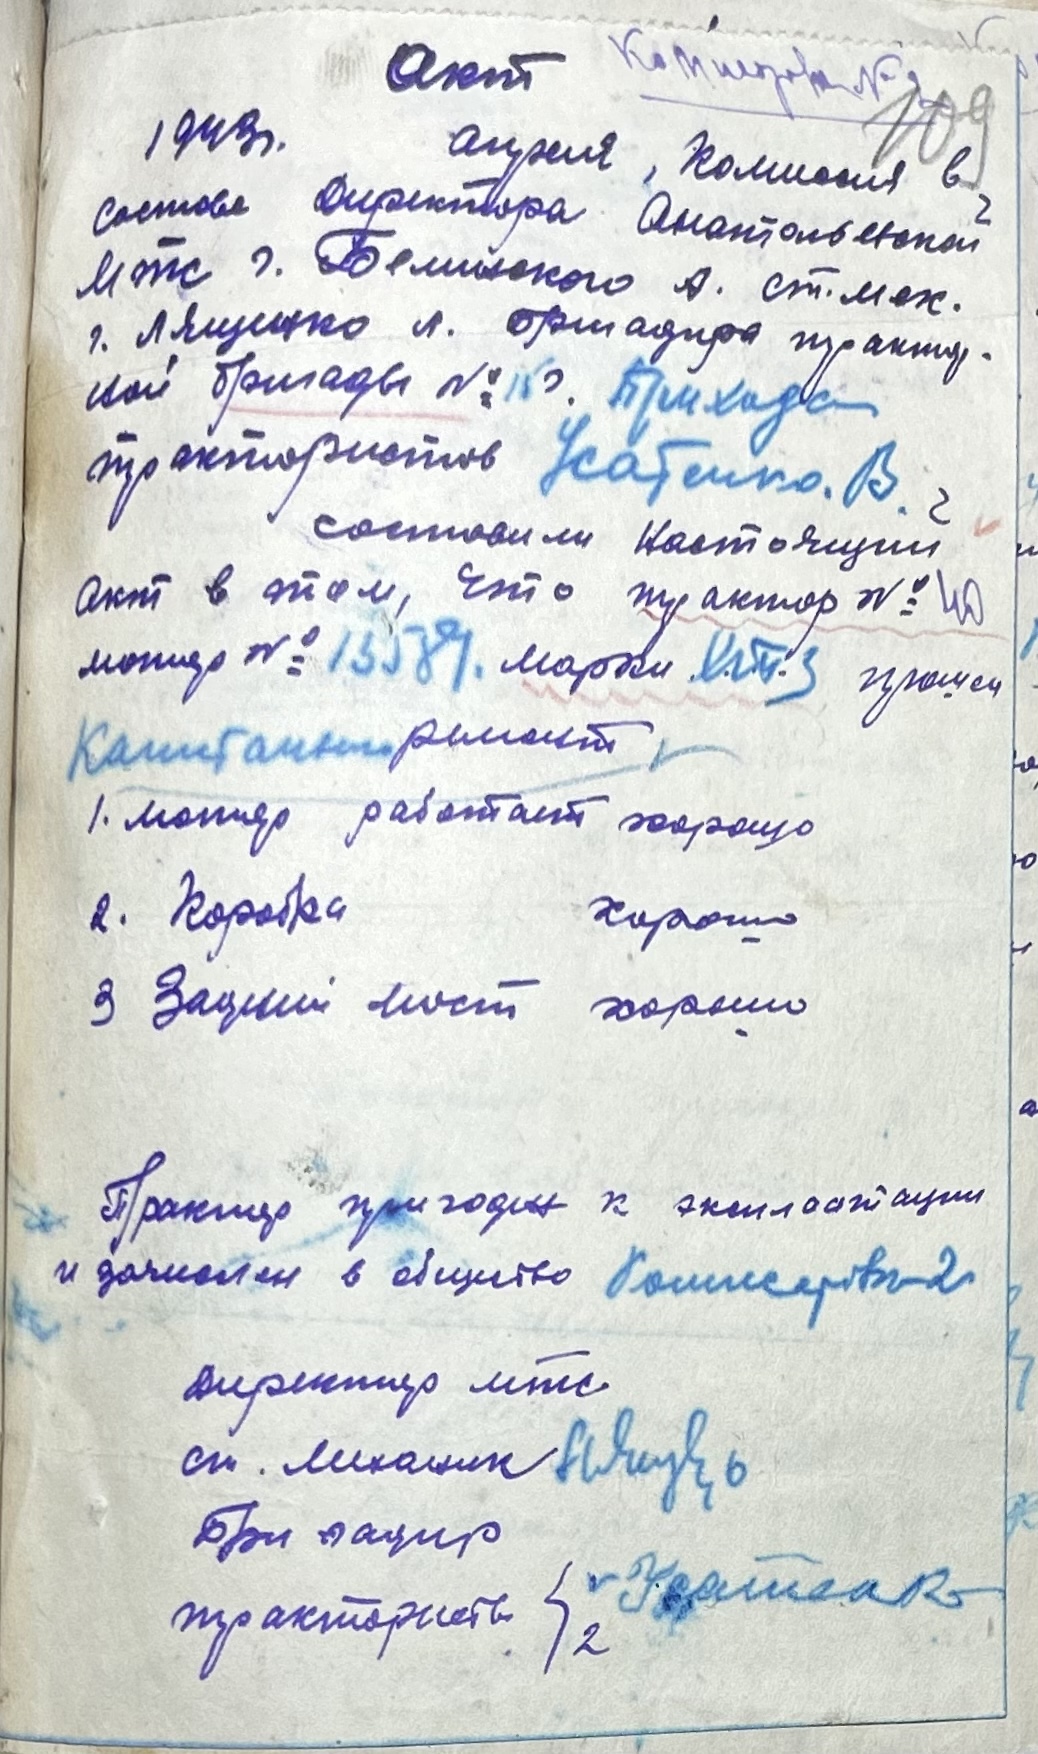 Акт
109
1943г. апреля, Комиссия в
составе Директора Анатольевской
МТС г. Белинского А. ст. мех.
г. Лященко А. бригадира трактор-
ной бригады № 15 г. Прихода
трактористов Усатенко. В. 2
составили настоящий
акт в том, что трактор № 40
мотор № 13589. марки ХТЗ прошел
Капитальный ремонт
1. мотор работает хорошо
2. Коробка хорошо
3 Задний мост хорошо
Трактор пригоден к эксплоатации
и зачислен в общество
Директор МТС
ст. Механик
Бригадир
трактористы
2